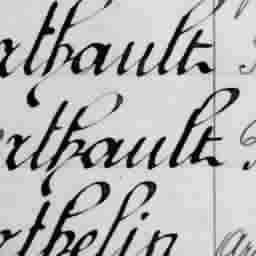 rthault
rthault
rthelin